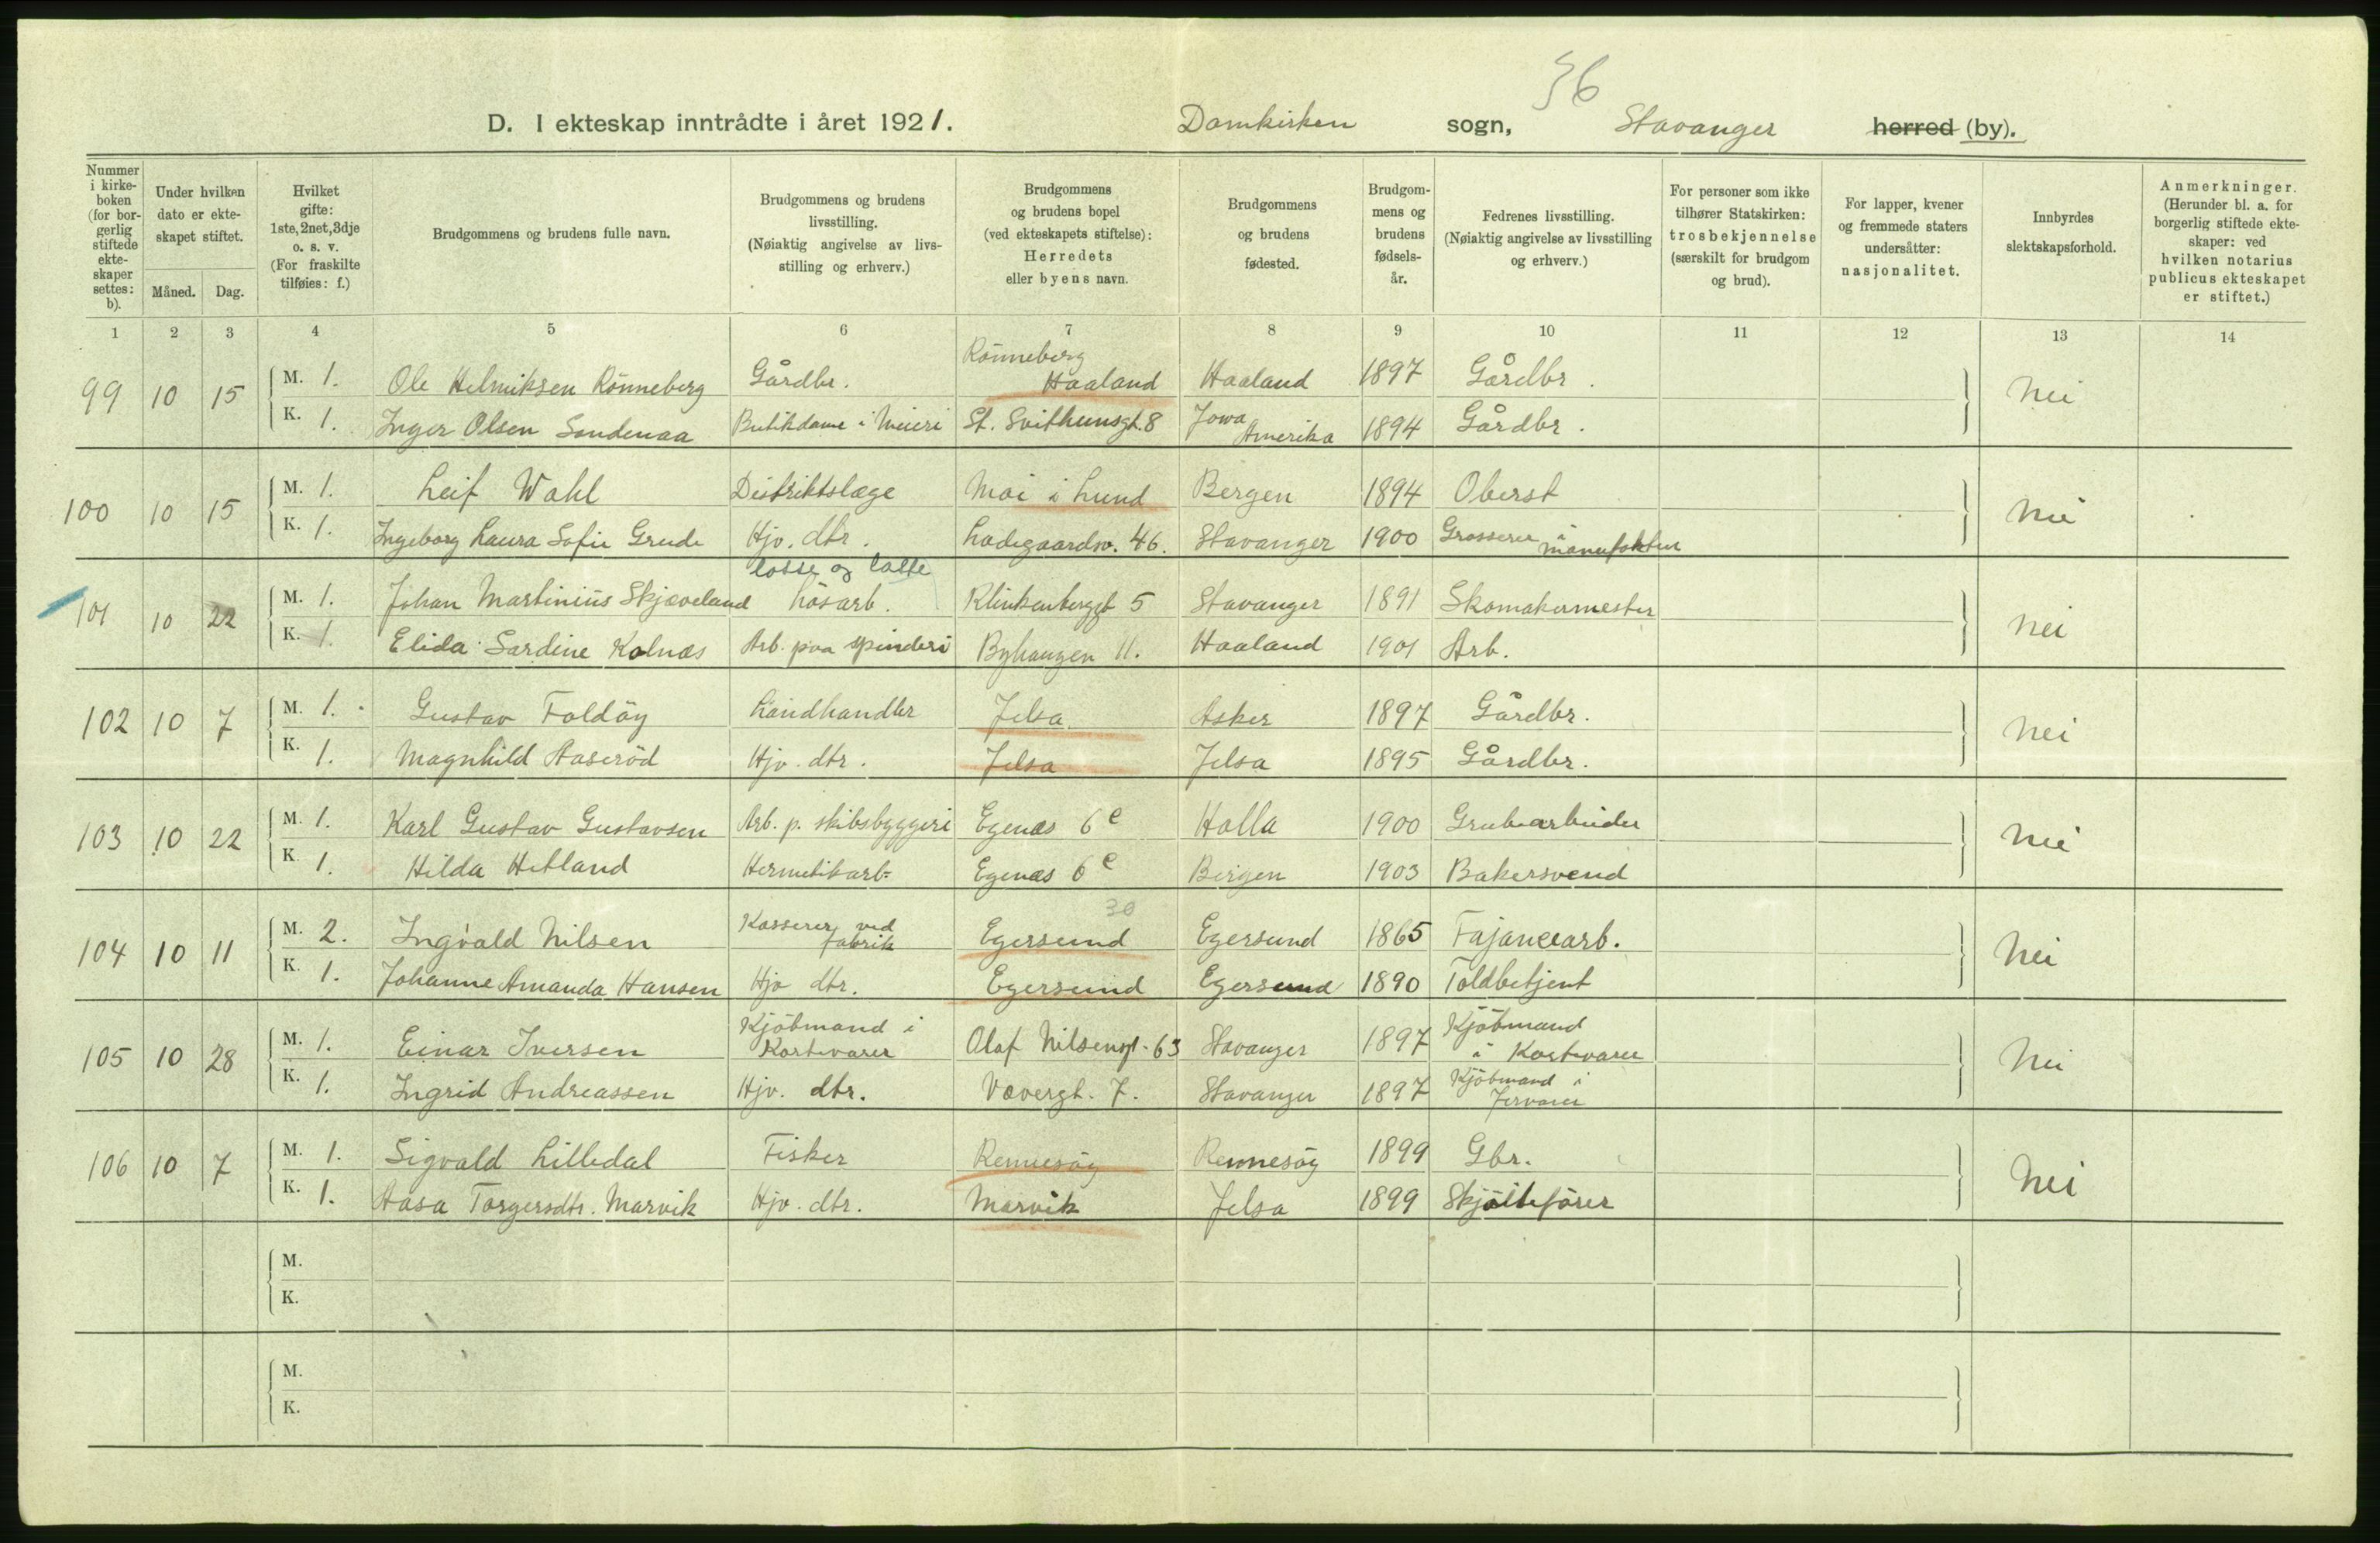 36
D. I ekteskap inntrådte i året 1921. Domkirken sogn, Stavanger herred (by).
Nummer i kirke-boken (for bor-gerlig stiftede ekte-skaper settes: b).
Under hvilken dato er ekte-skapet stiftet.
Måned. Dag.
Hvilket gifte: 1ste, 2net, 3dje o. s. v. (For fraskilte tilføies: f.)
Brudgommens og brudens fulle navn.
Brudgommens og brudens livsstilling. (Nøiaktig angivelse av livs-stilling og erhverv.)
Brudgommens og brudens bopel (ved ekteskapets stiftelse): Herredets eller byens navn.
Brudgommens og brudens fødested.
Brudgom-mens og brudens fødsels-år.
Fedrenes livsstilling. (Nøiaktig angivelse av livsstilling og erhverv.)
For personer som ikke tilhører Statskirken: trosbekjennelse (særskilt for brudgom og brud).
For lapper, kvener og fremmede staters undersåtter: nasjonalitet.
Innbyrdes slektskapsforhold.
Anmerkninger. (Herunder bl. a. for borgerlig stiftede ekte-skaper: ved hvilken notarius publicus ekteskapet er stiftet.)
1 2 3 4 5 6 7 8 9 10 11 12 13 14
99 10 15 M. 1. Ole Helmiksen Rönneberg Gårdbr. Rönneberg Haaland Haaland 1897 Gårdbr. Nei
K. 1. Inger Olsen Sondenaa Butikdame i Meieri St. Svithunsgt. 8 Jowa Amerika 1894 Gårdbr.
100 10 15 M. 1. Leif Wahl Distriktslæge Moi i Lund Bergen 1894 Oberst Nei
K. 1. Ingeborg Laura Sofie Grude Hjv. dtr. Ladegaardsv. 46. Stavanger 1900 Grosserer i manufaktur
101 10 22 M. 1. Johan Martinius Skjæveland losse og laste Løsarb. Klinkenberggt 5 Stavanger 1891 Skomakermester Nei
K. 1. Elida Sardine Kolnæs Arb. paa spinderi Byhaugen 11. Haaland 1901 Arb.
102 10 7 M. 1. Gustav Foldöy Landhandler Jelsa Asker 1897 Gårdbr. Nei
K. 1. Magnhild Aaseröd Hjv. dtr. Jelsa Jelsa 1895 Gårdbr.
103 10 22 M. 1. Karl Gustav Gustavsen Arb. p. skibsbyggeri Egenæs 6 e Holla 1900 Grubearbeider Nei
K. 1. Hilda Hetland Hermetikarb. Egenæs 6 e Bergen 1903 Bakersvend
30
104 10 11 M. 2. Ingvald Nilsen Kasserer ved fabrik Egersund Egersund 1865 Fajancearb. Nei
K. 1. Johanne Amanda Hansen Hjv dtr. Egersund Egersund 1890 Toldbetjent
105 10 28 M. 1. Einar Iversen Kjöbmand i Kortevarer Olaf Nilsensgt. 63 Stavanger 1897 Kjöbmand i Kortevarer Nei
K. 1. Ingrid Andreassen Hjv. dtr. Vævergt. 7. Stavanger 1897 Kjöbmand i Jervarer
106 10 7 M. 1. Sigvald Lilledal Fisker Rennesöy Rennesöy 1899 Gbr. Nei
K. 1. Aasa Torgersdtr. Marvik Hjv. dtr. Marvik Jelsa 1899 Skjöitefører
M.
K.
M.
K.